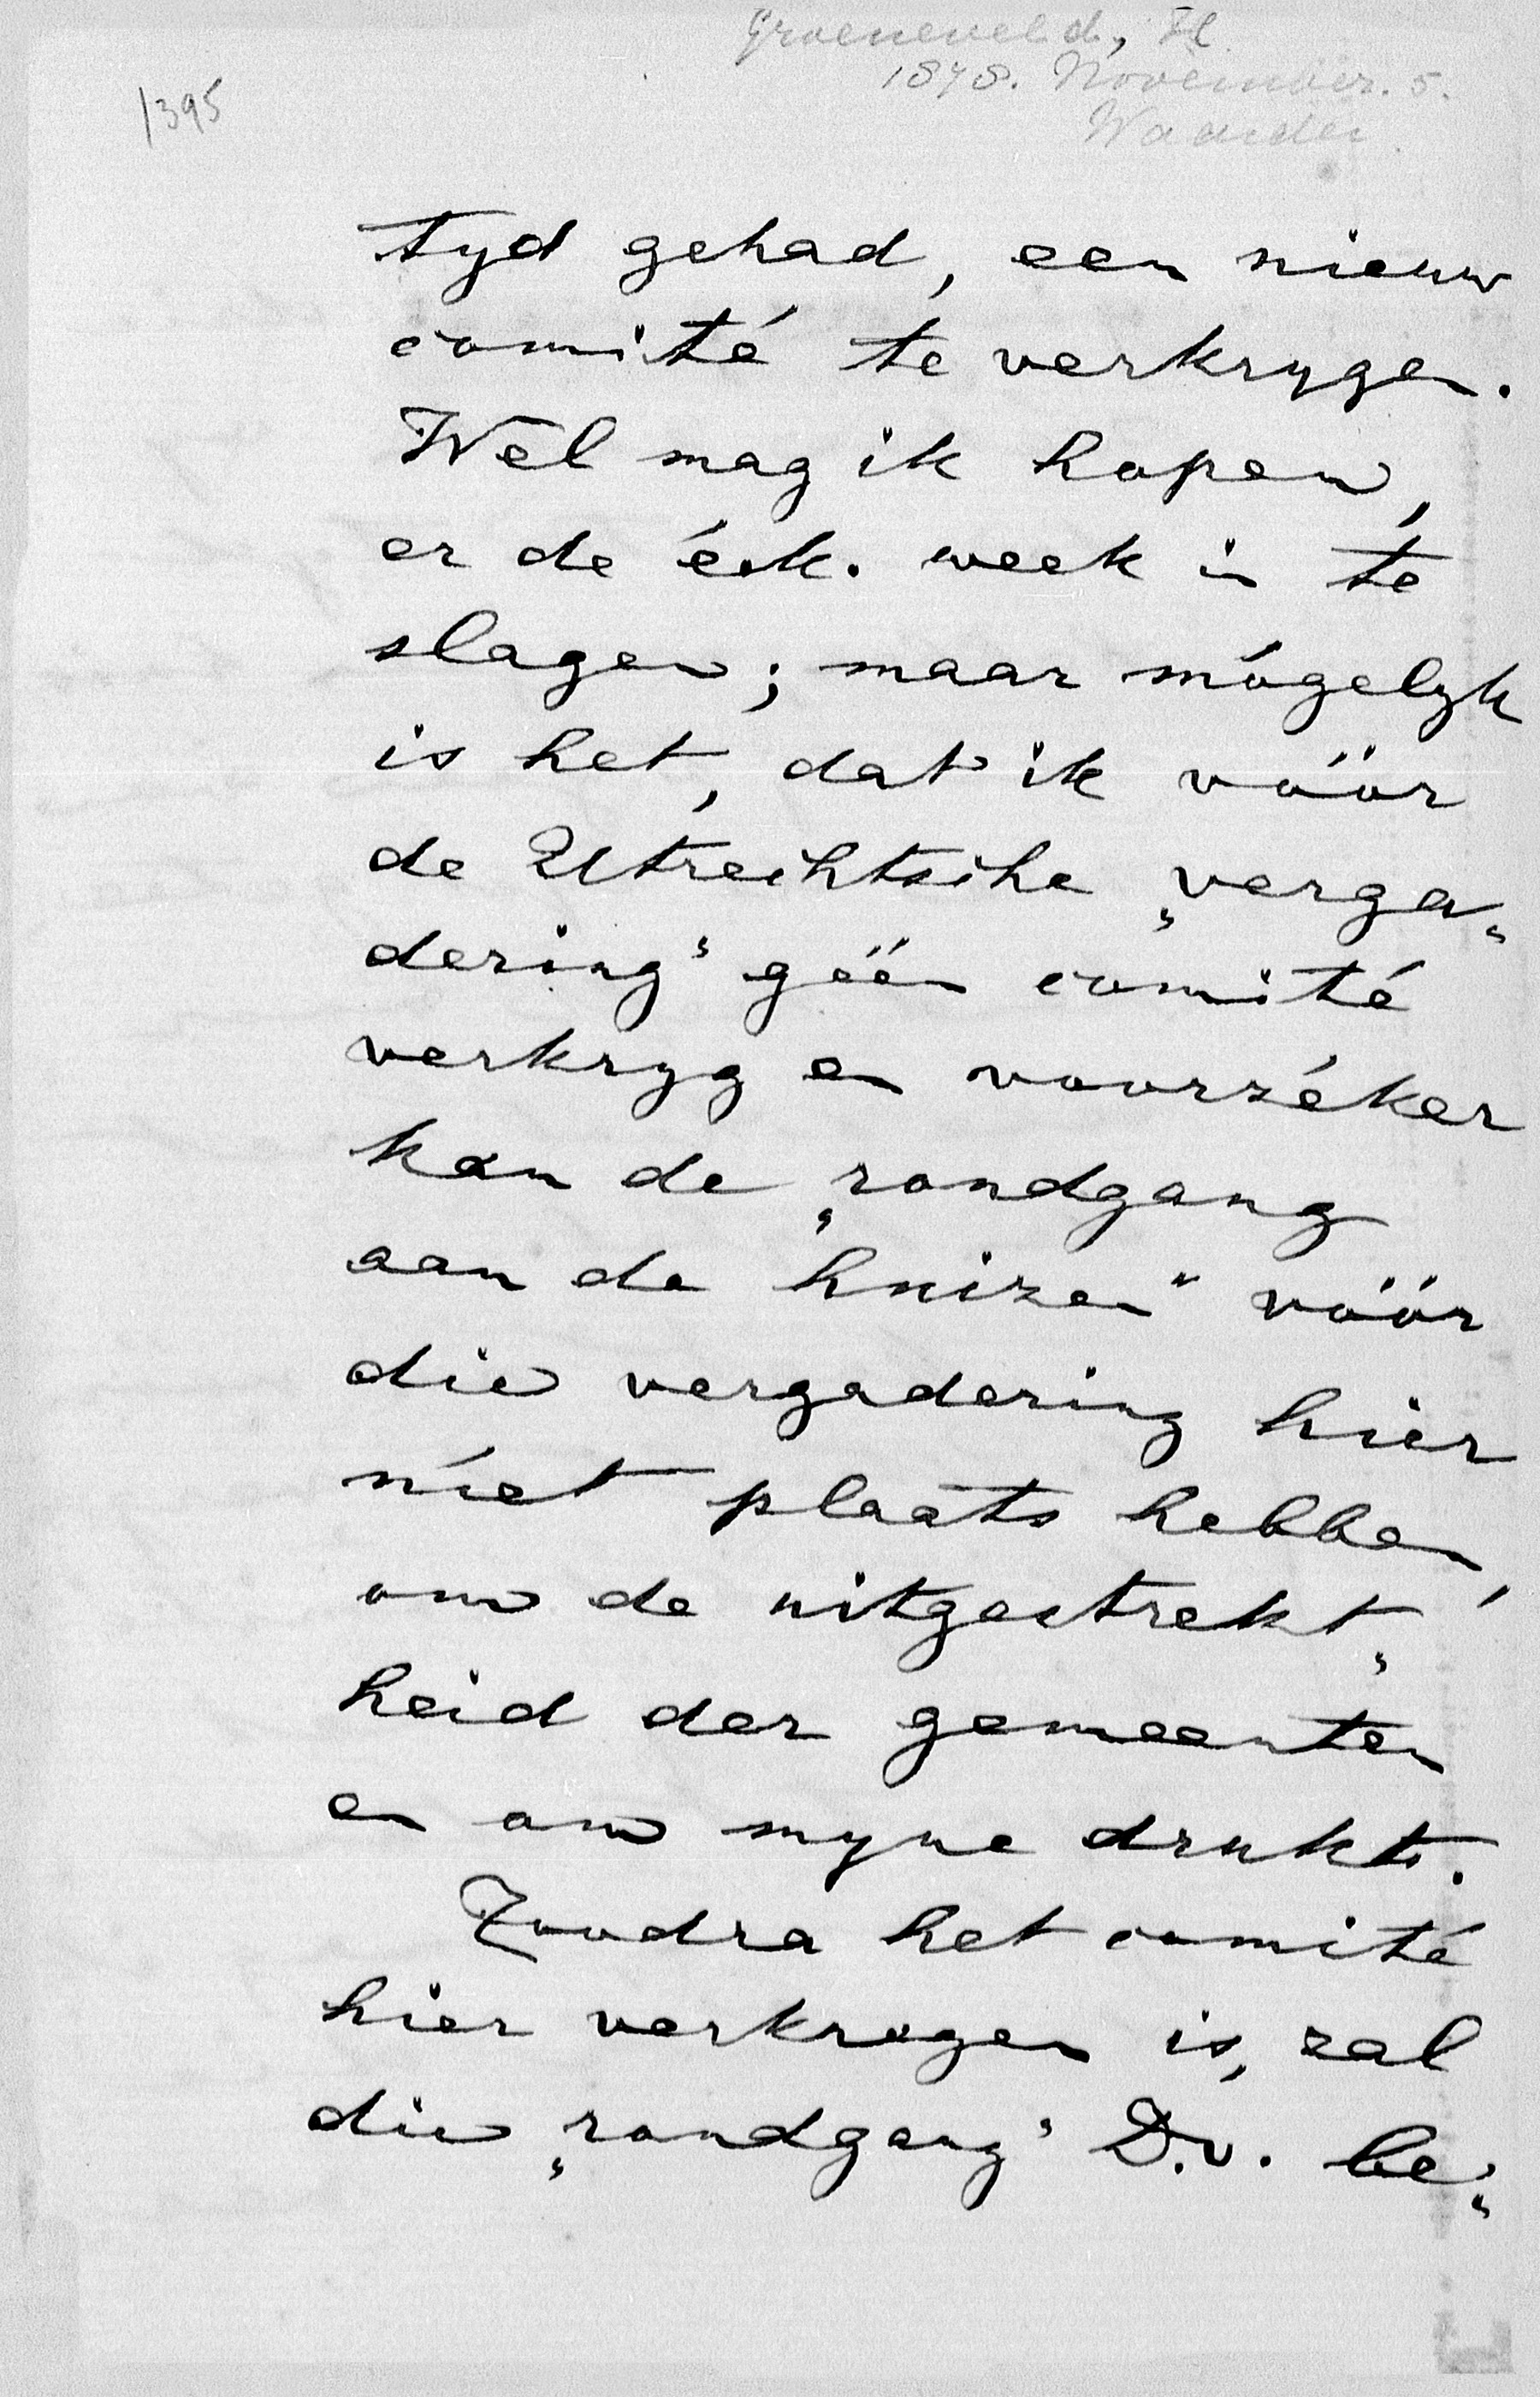 Groeneveld, H.
1878. November. 5.
Waarder.
1395
tyd gehad, een nieuw
comité te verkrygen.
Wèl mag ik hopen,
er de éék. week in te
slagen; maar mógelyk
is het, dat ik vóór
de Utrechtsche „verga„
dering" géén comité
verkryg en voorzéker
kan de „rondgang
aan de huizen" vóór
die vergadering hier
níet plaats hebben,
om de uitgestrekt„
heid der gemeenten
en om myne drukte.
Zoodra het comité
hier verkregen is, zal
die „rondgang" D.v. be„